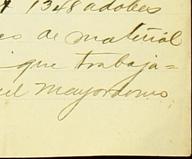 1348 adobes
es de material
que trabaja=
el Mayordomo